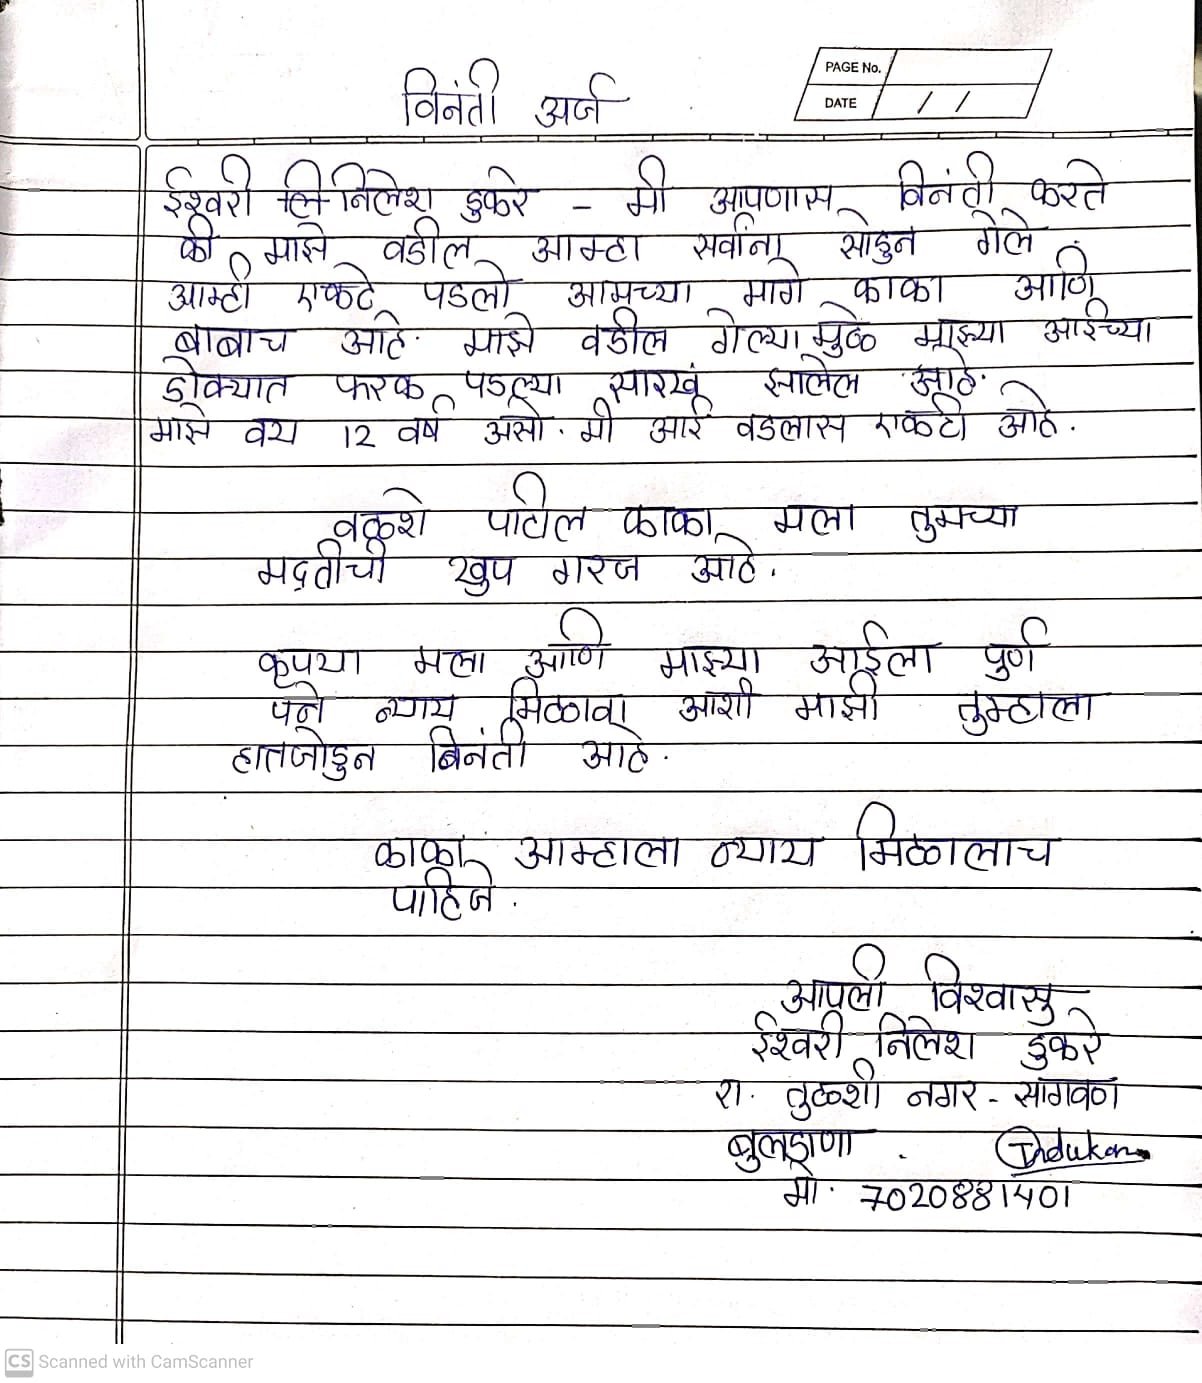 PAGE No.
DATE / /
विनंती अर्ज
ईश्वरी नि निलेश डुकरे - मी आपणास विनंती करते
की माझे वडील आम्हा सर्वांना सोडुन गेले
आम्ही एकटे पडलो आमच्या मागे काका आणि
बाबाच आहे. माझे वडील गेल्या मुळे माझ्या आईच्या
डोक्यात फरक पडल्या सारखं झालेल आहे.
माझे वय 12 वर्ष असो. मी आई वडलास एकटी आहे.
वळशे पाटील काका मला तुमच्या
मद्रतीची खुप गरज आहे.
कृपया मला आणि माझ्या आईला पुर्ण
पने न्याय मिळावा आशी माझी तुम्हाला
हातजोडुन बिनंती आहे.
काका आम्हाला न्याय मिळालाच
पाहिजे.
आपली विश्वासु
ईश्वरी निलेश डुकरे
रा. तुळशी नगर - सागवण
बुलढाणा.
मो. 7020881401
CS Scanned with CamScanner